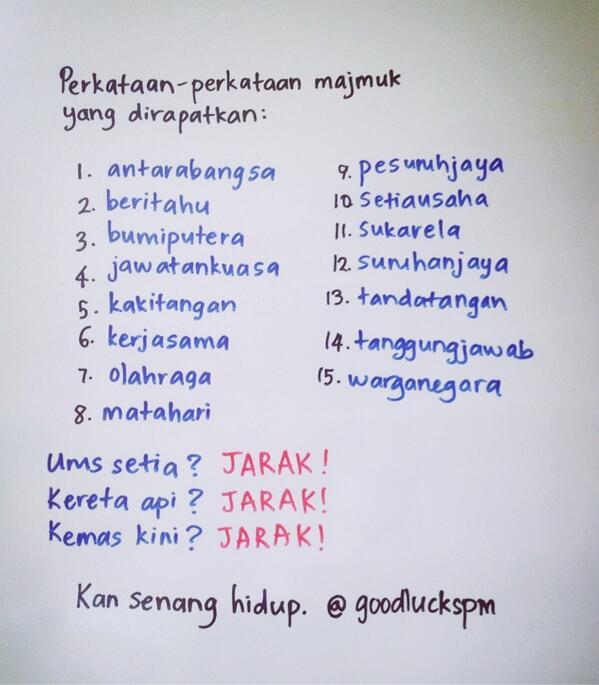 Perkataan-perkataan majmuk
yang dirapatkan:
1. antarabangsa
2. beritahu
3. bumiputera
4. jawatankuasa
5. kakitangan
6. kerjasama
7. olahraga
8. matahari
9. pesuruhjaya
10. setiausaha
11. sukarela
12. suruhanjaya
13. tandatangan
14. tanggungjawab
15. warganegara
Ums setia? JARAK!
Kereta api? JARAK!
Kemas kini? JARAK!
Kan senang hidup. @goodluckspm